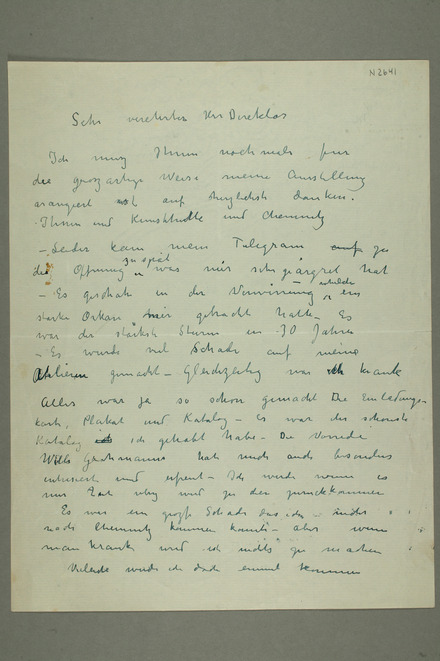 N2641
Sehr verehrter Herr Direktor
Ich muz Ihnen nochmals für
die groszartige Weise meine Ausstellung
arangiert ist auf herzlichste danken.
Ihnen und Kunsthütte und Chemnitz
– Leider kam mein Telegram zu
die Öffnung zu spät was mir sehr geärgret hat
– Es geschah in der Verwirrung ein
starke Orkan hier gebracht hatte – Es
war der stärkste Sturm in 70 Jahren
– Es wurde viel Schade auf meine
Atelieren gemacht – Gleichzeitig war ich krank
Alles war ja so schön gemacht Die Einladungen
kart, Plakat und Katalog – Es war der schönste
Katalog ich gehabt habe – Die Vorrede
Wills Grohmanns hat mich auch besonders
intresiert und erfreut – Ich werde wenn es
mir Zeit wird zu der zurückkommen
Es war ein grosze Schade das ich – nicht
nach Chemnitz kommen konnte – aber wenn
man krank wird ist nichts zu machen
Vieleicht würde ich doch einmal kommen